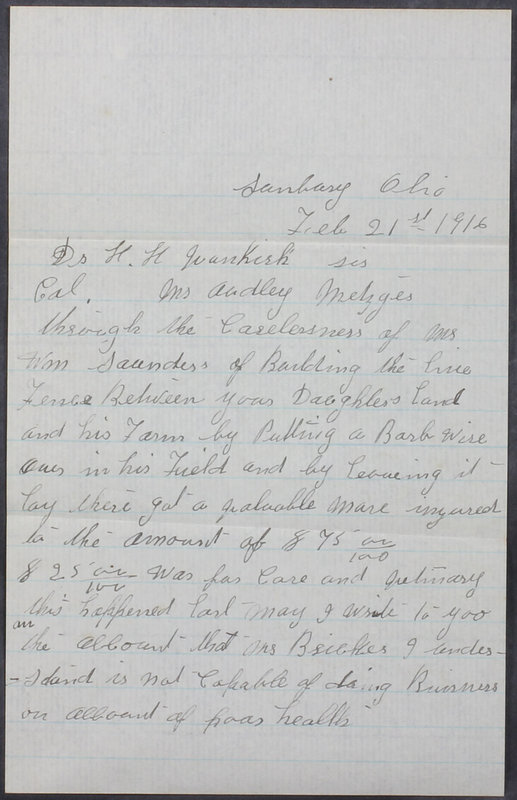 Sunbury Ohio
Feb 21st 1916
Dr H. H Vankirk sir
Col. Mr Audley Metzger
through the Carelessness of Mr
Wm Saunders of Building the line
Fence Between your Daughters land
and his Farm by Putting a Barb wire
over in his Field and by leaveing it
lay there got a valuable mare injured
to the amount of $ 75 00/100
$ 25 00/100 Was for Care and vetinary
this happened last May I write to you
on
the account that Mr I under-
-stand is not Capable of doing Buisness
on account of poor health